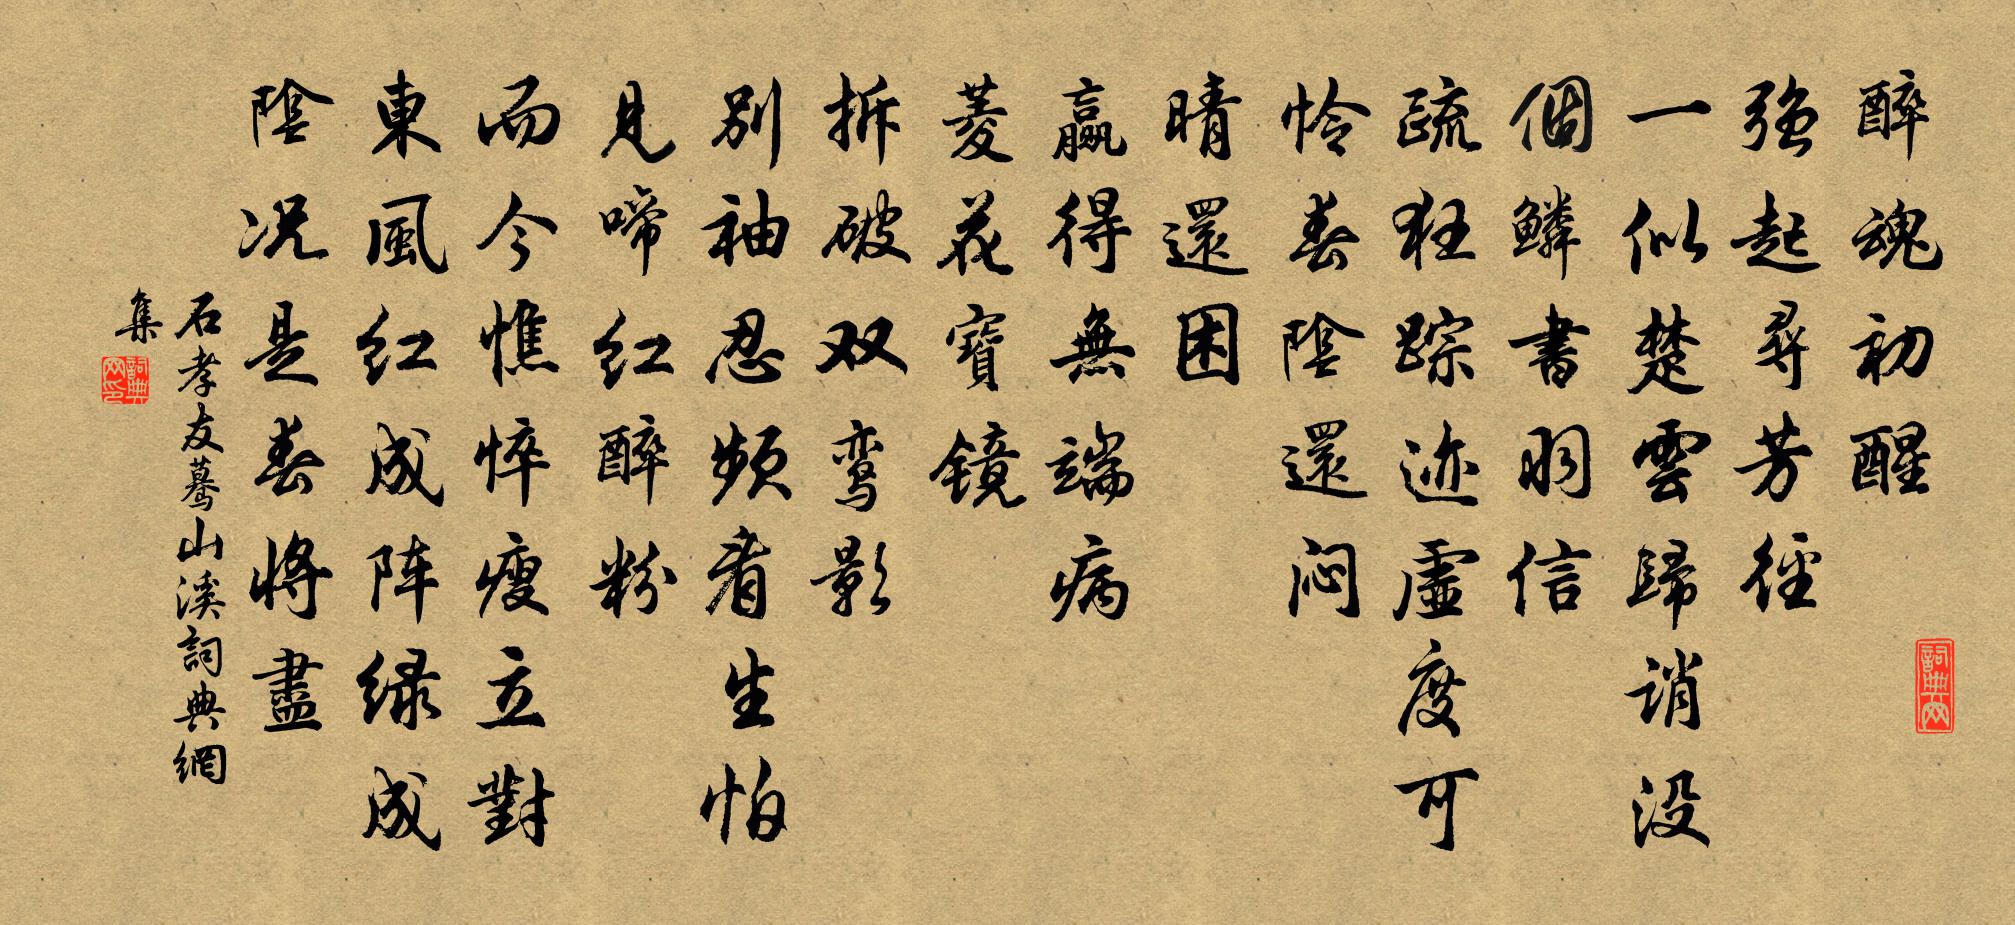 醉魂初醒
强起尋芳徑
一似楚雲歸誚没
個鱗書羽信
疏狂踪迹虚度可
怜春陰還闷
晴還困
贏得無端病
菱花寶镜
拆破双鸾影
别袖忍频看生怕
見啼红醉粉
而今憔悴瘦立對
東風红成阵绿成
陰况是春將盡
石孝友驀山溪詞典網
集
詞典网印
詞典网